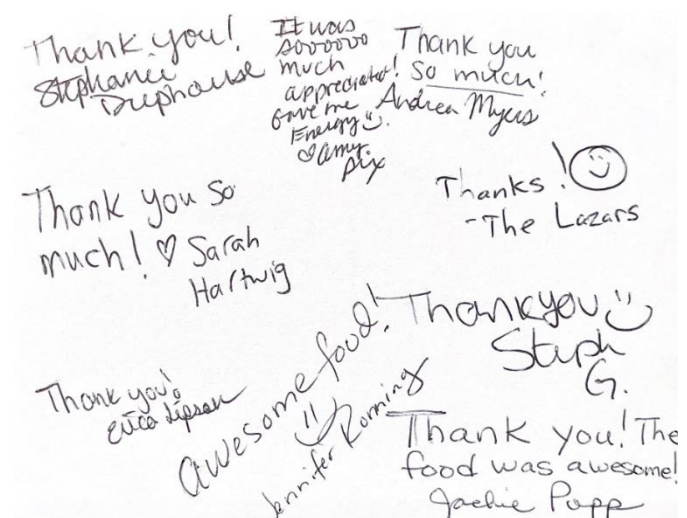 Thank you!
Stephanie
Diephouse
It was
sooooooo
much
appreciated!
Gave me
Energy
♡ amy
Dix
Thank you
so much!
Andrea Myers
Thanks!
-The Lazars
Thank you so
much! ♡ Sarah
Hartwig
Thankyou
Steph
G.
Thank you!
Erica Lipson
Awesome food!
Jennifer Korning
Thank you! The
food was awesome!
Jackie Popp